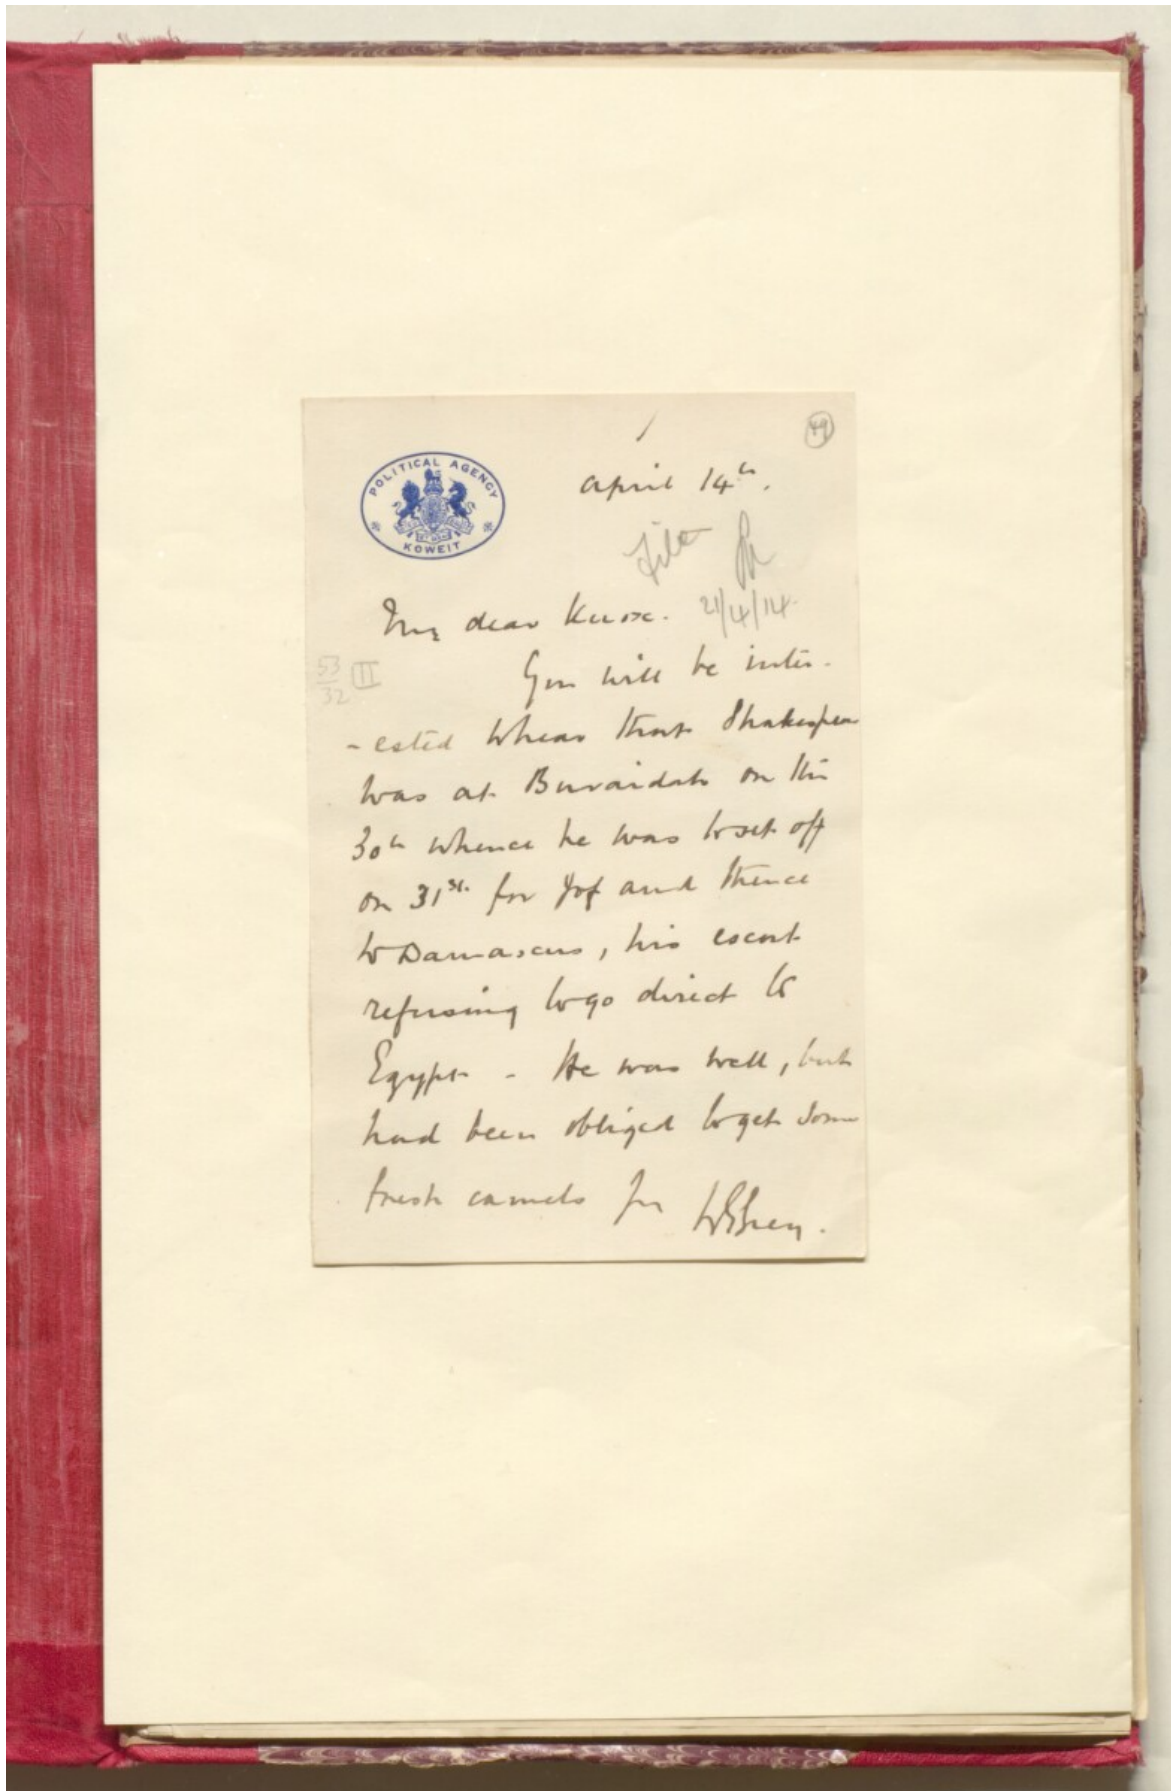 49
POLITICAL AGENCY
KOWEIT
April 14th.
File
21/4/14
My dear Knox.
53/32 II
You will be inter-
-ested to hear that Shakespear
was at Buraidah on the
30th whence he was to set off
on 31st. for Jof and thence
to Damascus, his escort
refusing to go direct to
Egypt - He was well, but
had been obliged to get some
fresh camels
WGGrey.